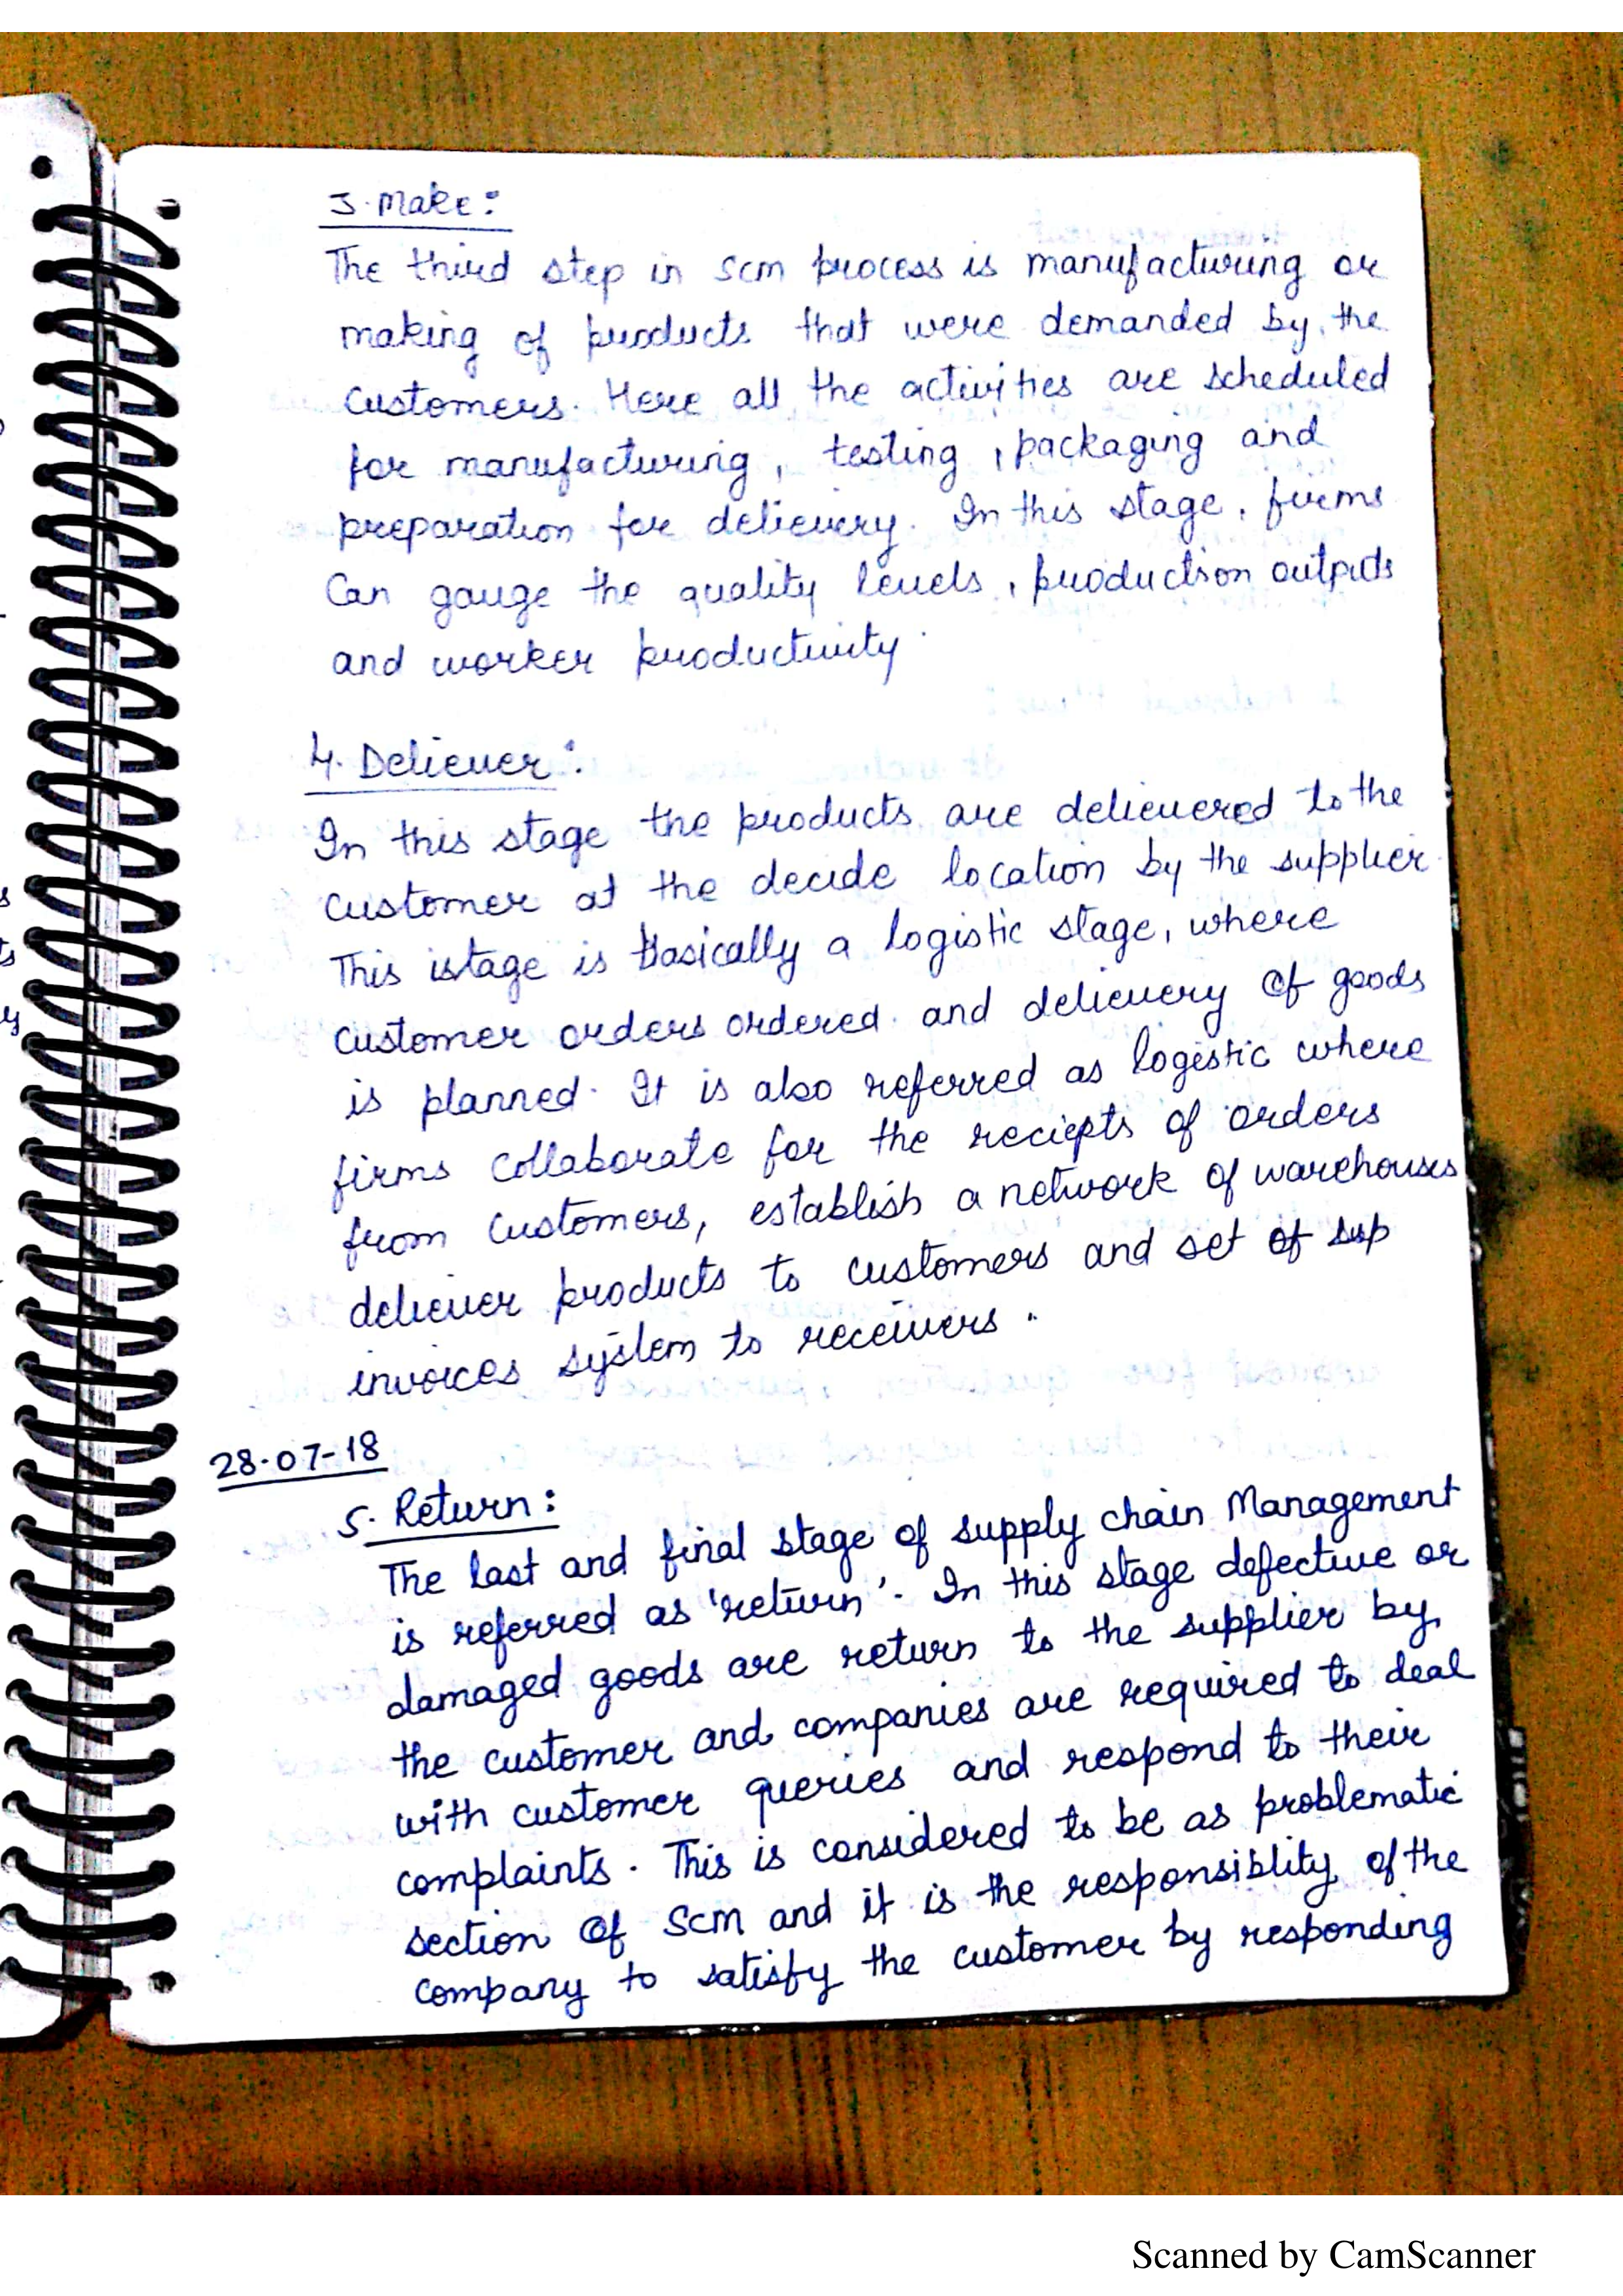 3. Make:
The third step in scm process is manufacturing or
making of products that were demanded by the
customers. Here all the activities are scheduled
for manufacturing, testing, packaging and
preparation for delievery. In this stage, firms
Can gauge the quality levels, production outputs
and worker productivity.
4. Deliever:
In this stage the products are delievered to the
customer at the decide location by the supplier.
This stage is basically a logistic stage, where
customer orders ordered and delievery of goods
is planned. It is also referred as logistic where
firms collaborate for the reciepts of orders
from customers, establish a network of warehouses
deliever products to customers and set of sup
invoices system to receivers.
28-07-18
5. Return:
The last and final stage of supply chain Management
is referred as 'return'. In this stage defective or
damaged goods are return to the supplier by
the customer and companies are required to deal
with customer queries and respond to their
complaints. This is considered to be as problematic
section of SCM and it is the responsiblity of the
company to satisfy the customer by responding
Scanned by CamScanner